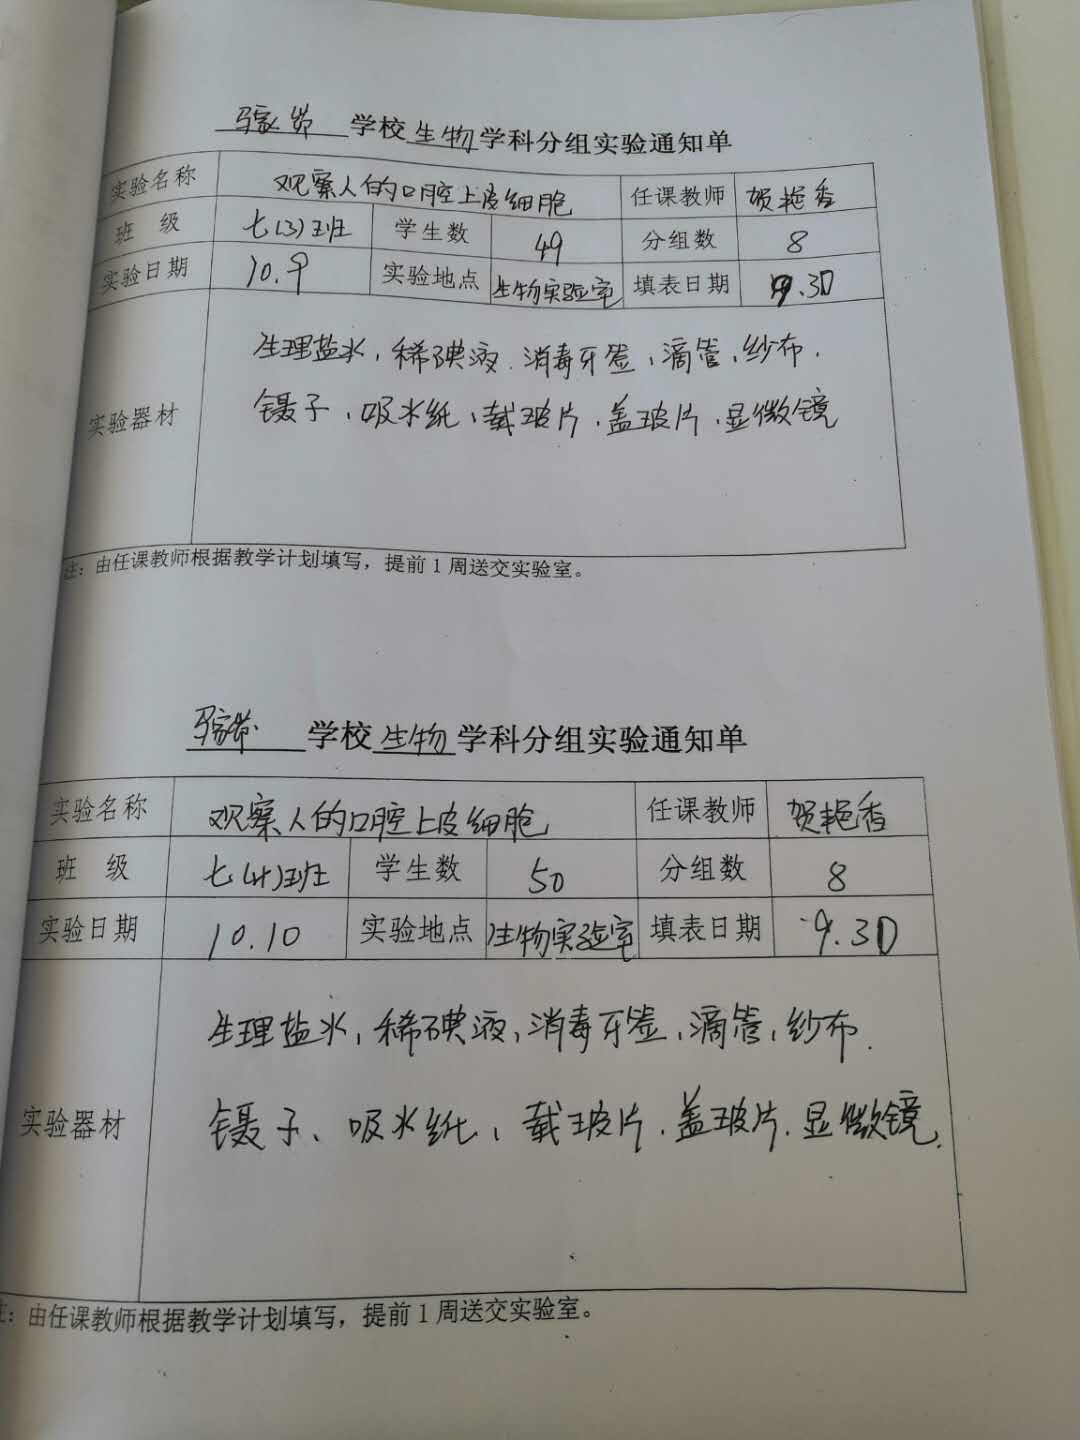 学校生物学科分组实验通知单
实验名称 观察人的口腔上皮细胞 任课教师 贺艳香
班 级 七(3)班 学生数 49 分组数 8
实验日期 10.9 实验地点 生物实验室 填表日期 9.30
生理盐水,稀碘液.消毒牙签,滴管,纱布.
实验器材 镊子、吸水纸、载玻片.盖玻片.显微镜
注:由任课教师根据教学计划填写,提前1周送交实验室。
学校生物学科分组实验通知单
实验名称 观察人的口腔上皮细胞 任课教师 贺艳香
班 级 七(4)班 学生数 50 分组数 8
实验日期 10.10 实验地点 生物实验室 填表日期 9.30
生理盐水,稀碘液,消毒牙签,滴管,纱布.
实验器材 镊子、吸水纸、载玻片.盖玻片.显微镜.
注:由任课教师根据教学计划填写,提前1周送交实验室。